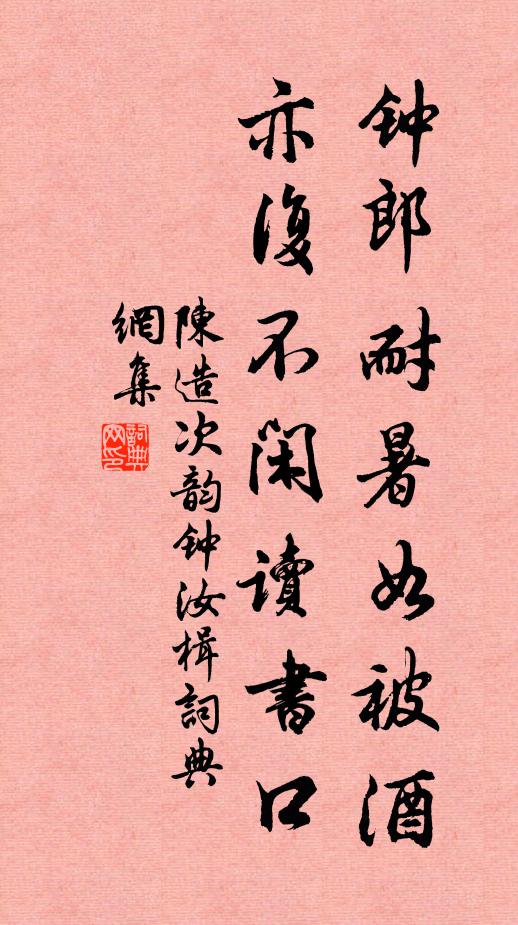 钟郎耐暑如被酒
亦復不閑讀書口
陳造次韵钟汝楫詞典
網集
詞典
网印